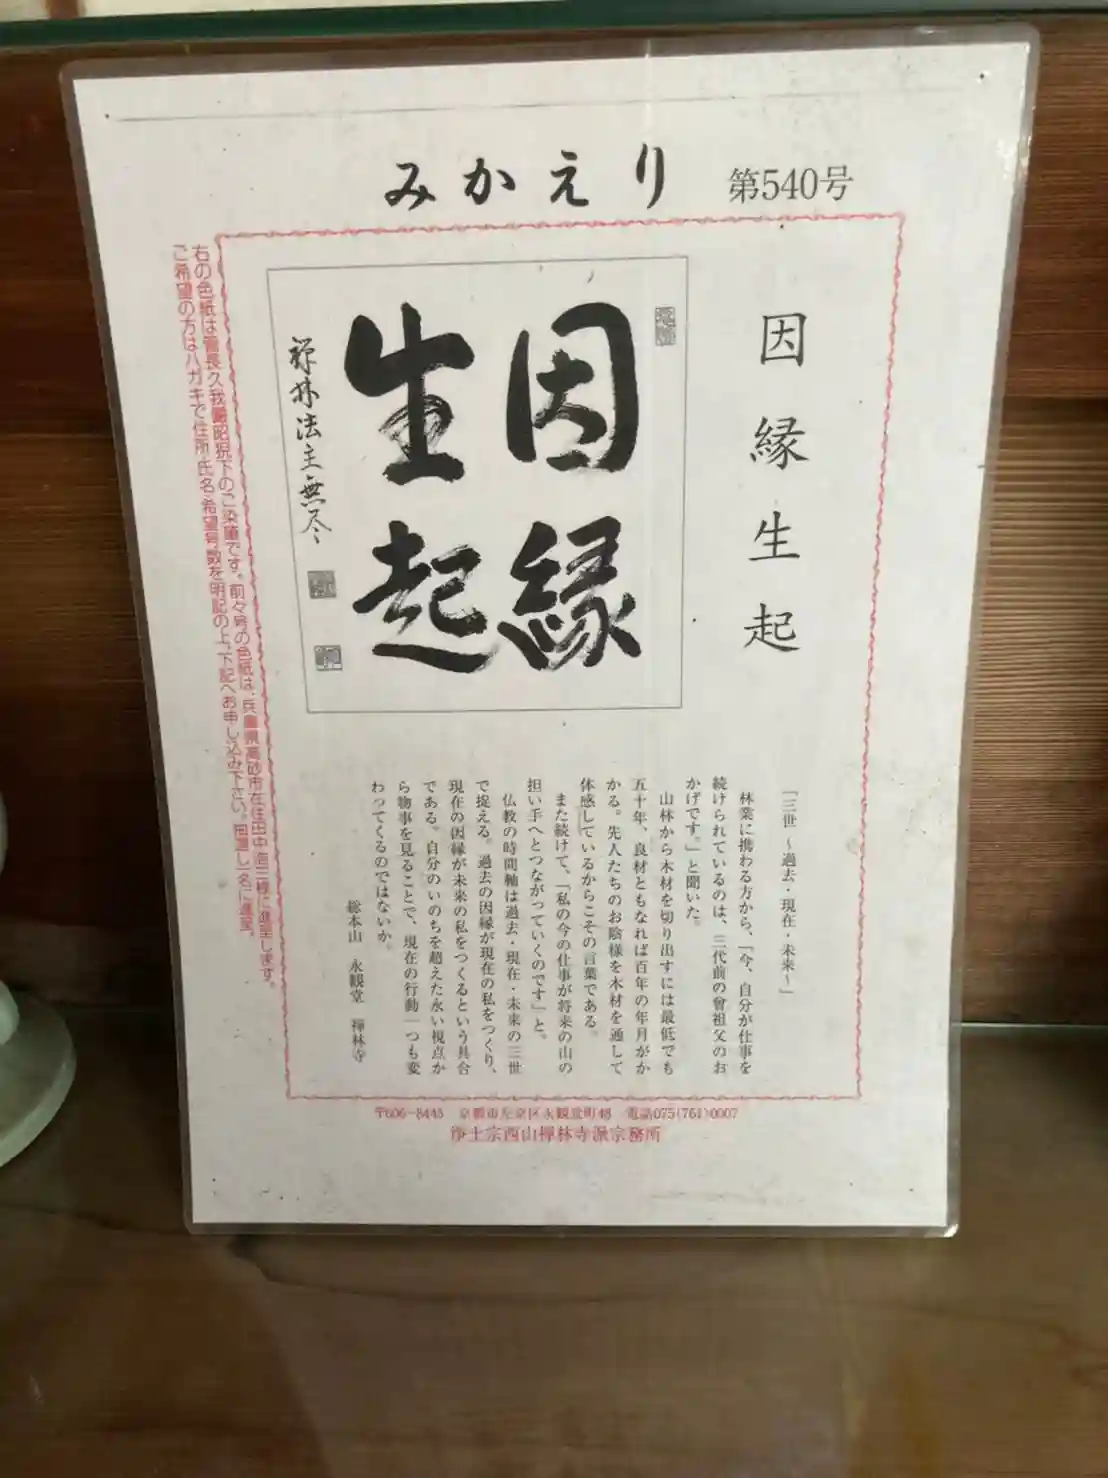 みかえり 第540号
因縁生起
因縁
生起
禅林法主無尽
「三世 ～過去・現在・未来～」
林業に携わる方から、「今、自分が仕事を
続けられているのは、三代前の曾祖父のお
かげです。」と聞いた。
山林から木材を切り出すには最低でも
五十年、良材ともなれば百年の年月がか
かる。先人たちのお陰様を木材を通して
体感しているからこその言葉である。
また続けて、「私の今の仕事が将来の山の
担い手へとつながっていくのです」と。
仏教の時間軸は過去・現在・未来の三世
で捉える。過去の因縁が現在の私をつくり、
現在の因縁が未来の私をつくるという具合
である。自分のいのちを超えた永い視点か
ら物事を見ることで、現在の行動一つも変
わってくるのではないか。
総本山 永観堂 禅林寺
右の色紙は管長久我儼昭猊下のご染筆です。前々号の色紙は、兵庫県高砂市在住田中 様に進呈します。
ご希望の方はハガキで住所・氏名・希望号数を明記の上、下記へお申し込み下さい。抽選し一名に進呈。
〒606-8445 京都市左京区永観堂町48 電話075(761)0007
浄土宗西山禅林寺派宗務所